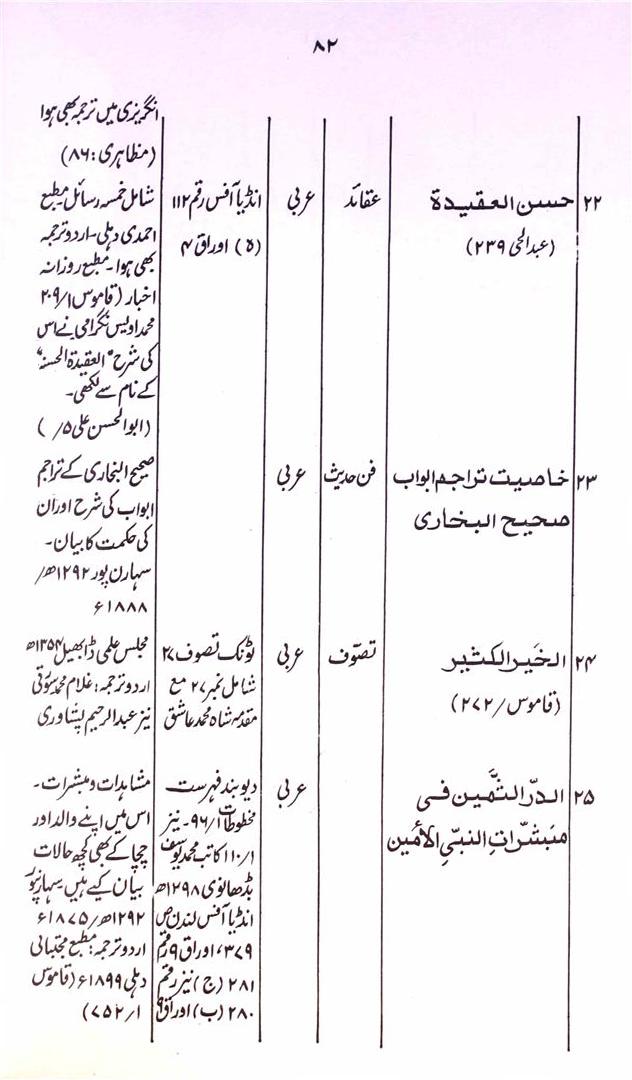 ۸۲
انگریزی میں ترجمہ بھی ہوا
(مظاہری: ۸۶)
۲۲ حسن العقیدة عقائد عربی انڈیا آفس رقم ۱۱۲ شامل خمسہ رسائل۔ مطبع
(عبدالحی ۲۳۹) (ہ) اوراق ۴ احمدی دہلی۔ اردو ترجمہ
بھی ہوا۔ مطبع روزانہ
اخبار (قاموس ۲۰۹/۱
محمد اویس نگرامی نے اس
کی شرح "العقیدة الحسنہ"
کے نام سے لکھی۔
(ابوالحسن علی ۵/ )
۲۳ خاصیت تراجم ابواب فن حدیث عربی صحیح البخاری کے تراجم
صحیح البخاری ابواب کی شرح اور ان
کی حکمت کا بیان۔
سہارن پور ۱۲۹۲ھ/
۱۸۸۸ء
۲۴ الخیر الکثیر تصوّف عربی ٹونک تصوف ۲۷ مجلس علمی ڈابھیل ۱۳۵۴ھ
(قاموس/ ۲۷۲) شامل نمبر ۲۷ مع اردو ترجمہ: غلام محمد سورتی
مقدمہ شاہ محمد عاشق نیز عبدالرحیم پشاوری
۲۵ الدرّ الثّمین فی عربی دیوبند فہرست مشاہدات و مبشرات۔
مبشّراتِ النبیّ الأمین مخطوطات ۹۶/۱۔ نیز اس میں اپنے والد اور
۱۱۰/۱ کاتب محمد یوسف چچا کے بھی کچھ حالات
بڈھانوی ۱۲۹۸ھ بیان کیے ہیں۔ سہارنپور
انڈیا آفس لندن ص ۱۲۹۲ھ/۱۸۷۵ء
۳۷۹، اوراق ۹ رقم اردو ترجمہ: مطبع مجتبائی
۲۸۱ (ج) نیز رقم دہلی ۱۸۹۹ء (قاموس
۲۸۰ (ب) اوراق ۹ ۷۵۲/۱)